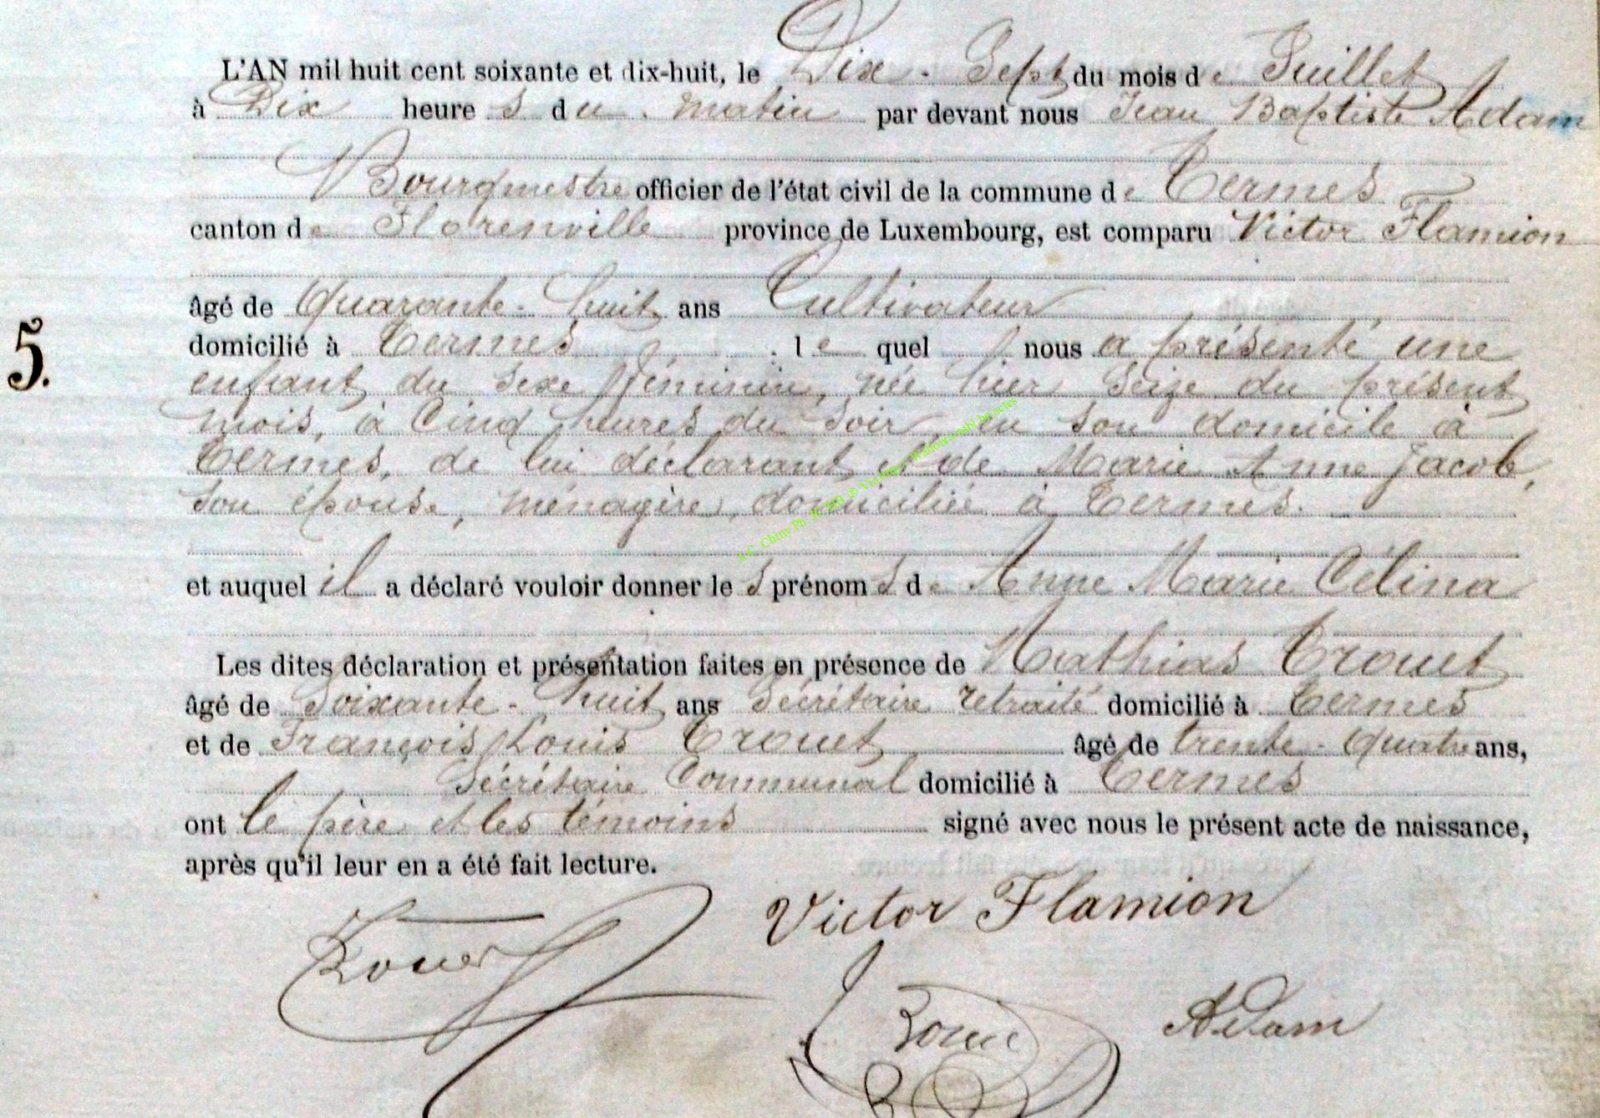 L'AN mil huit cent soixante et dix-huit, le Dix-Sept du mois de Juillet
à Dix heures du matin par devant nous Jean Baptiste Adam
Bourgmestre officier de l'état civil de la commune de Termes
canton de Florenville province de Luxembourg, est comparu Victor Flamion
âgé de Quarante-huit ans Cultivateur
domicilié à Termes lequel nous a présenté une
5.
enfant du sexe féminin, née hier seize du présent
mois, à Cinq heures du soir, en son domicile à
Termes, de lui déclarant et de Marie Anne Jacob,
son épouse, ménagère, domiciliée à Termes.
et auquel il a déclaré vouloir donner les prénoms de Anne Marie Célina
Les dites déclaration et présentation faites en présence de Mathias Trouet
âgé de Soixante-huit ans Secrétaire retraité domicilié à Termes
et de François Louis Trouet âgé de trente-quatre ans,
Secrétaire Communal domicilié à Termes
ont le père et les témoins signé avec nous le présent acte de naissance,
après qu'il leur en a été fait lecture.
Victor Flamion
Trouet
Adam